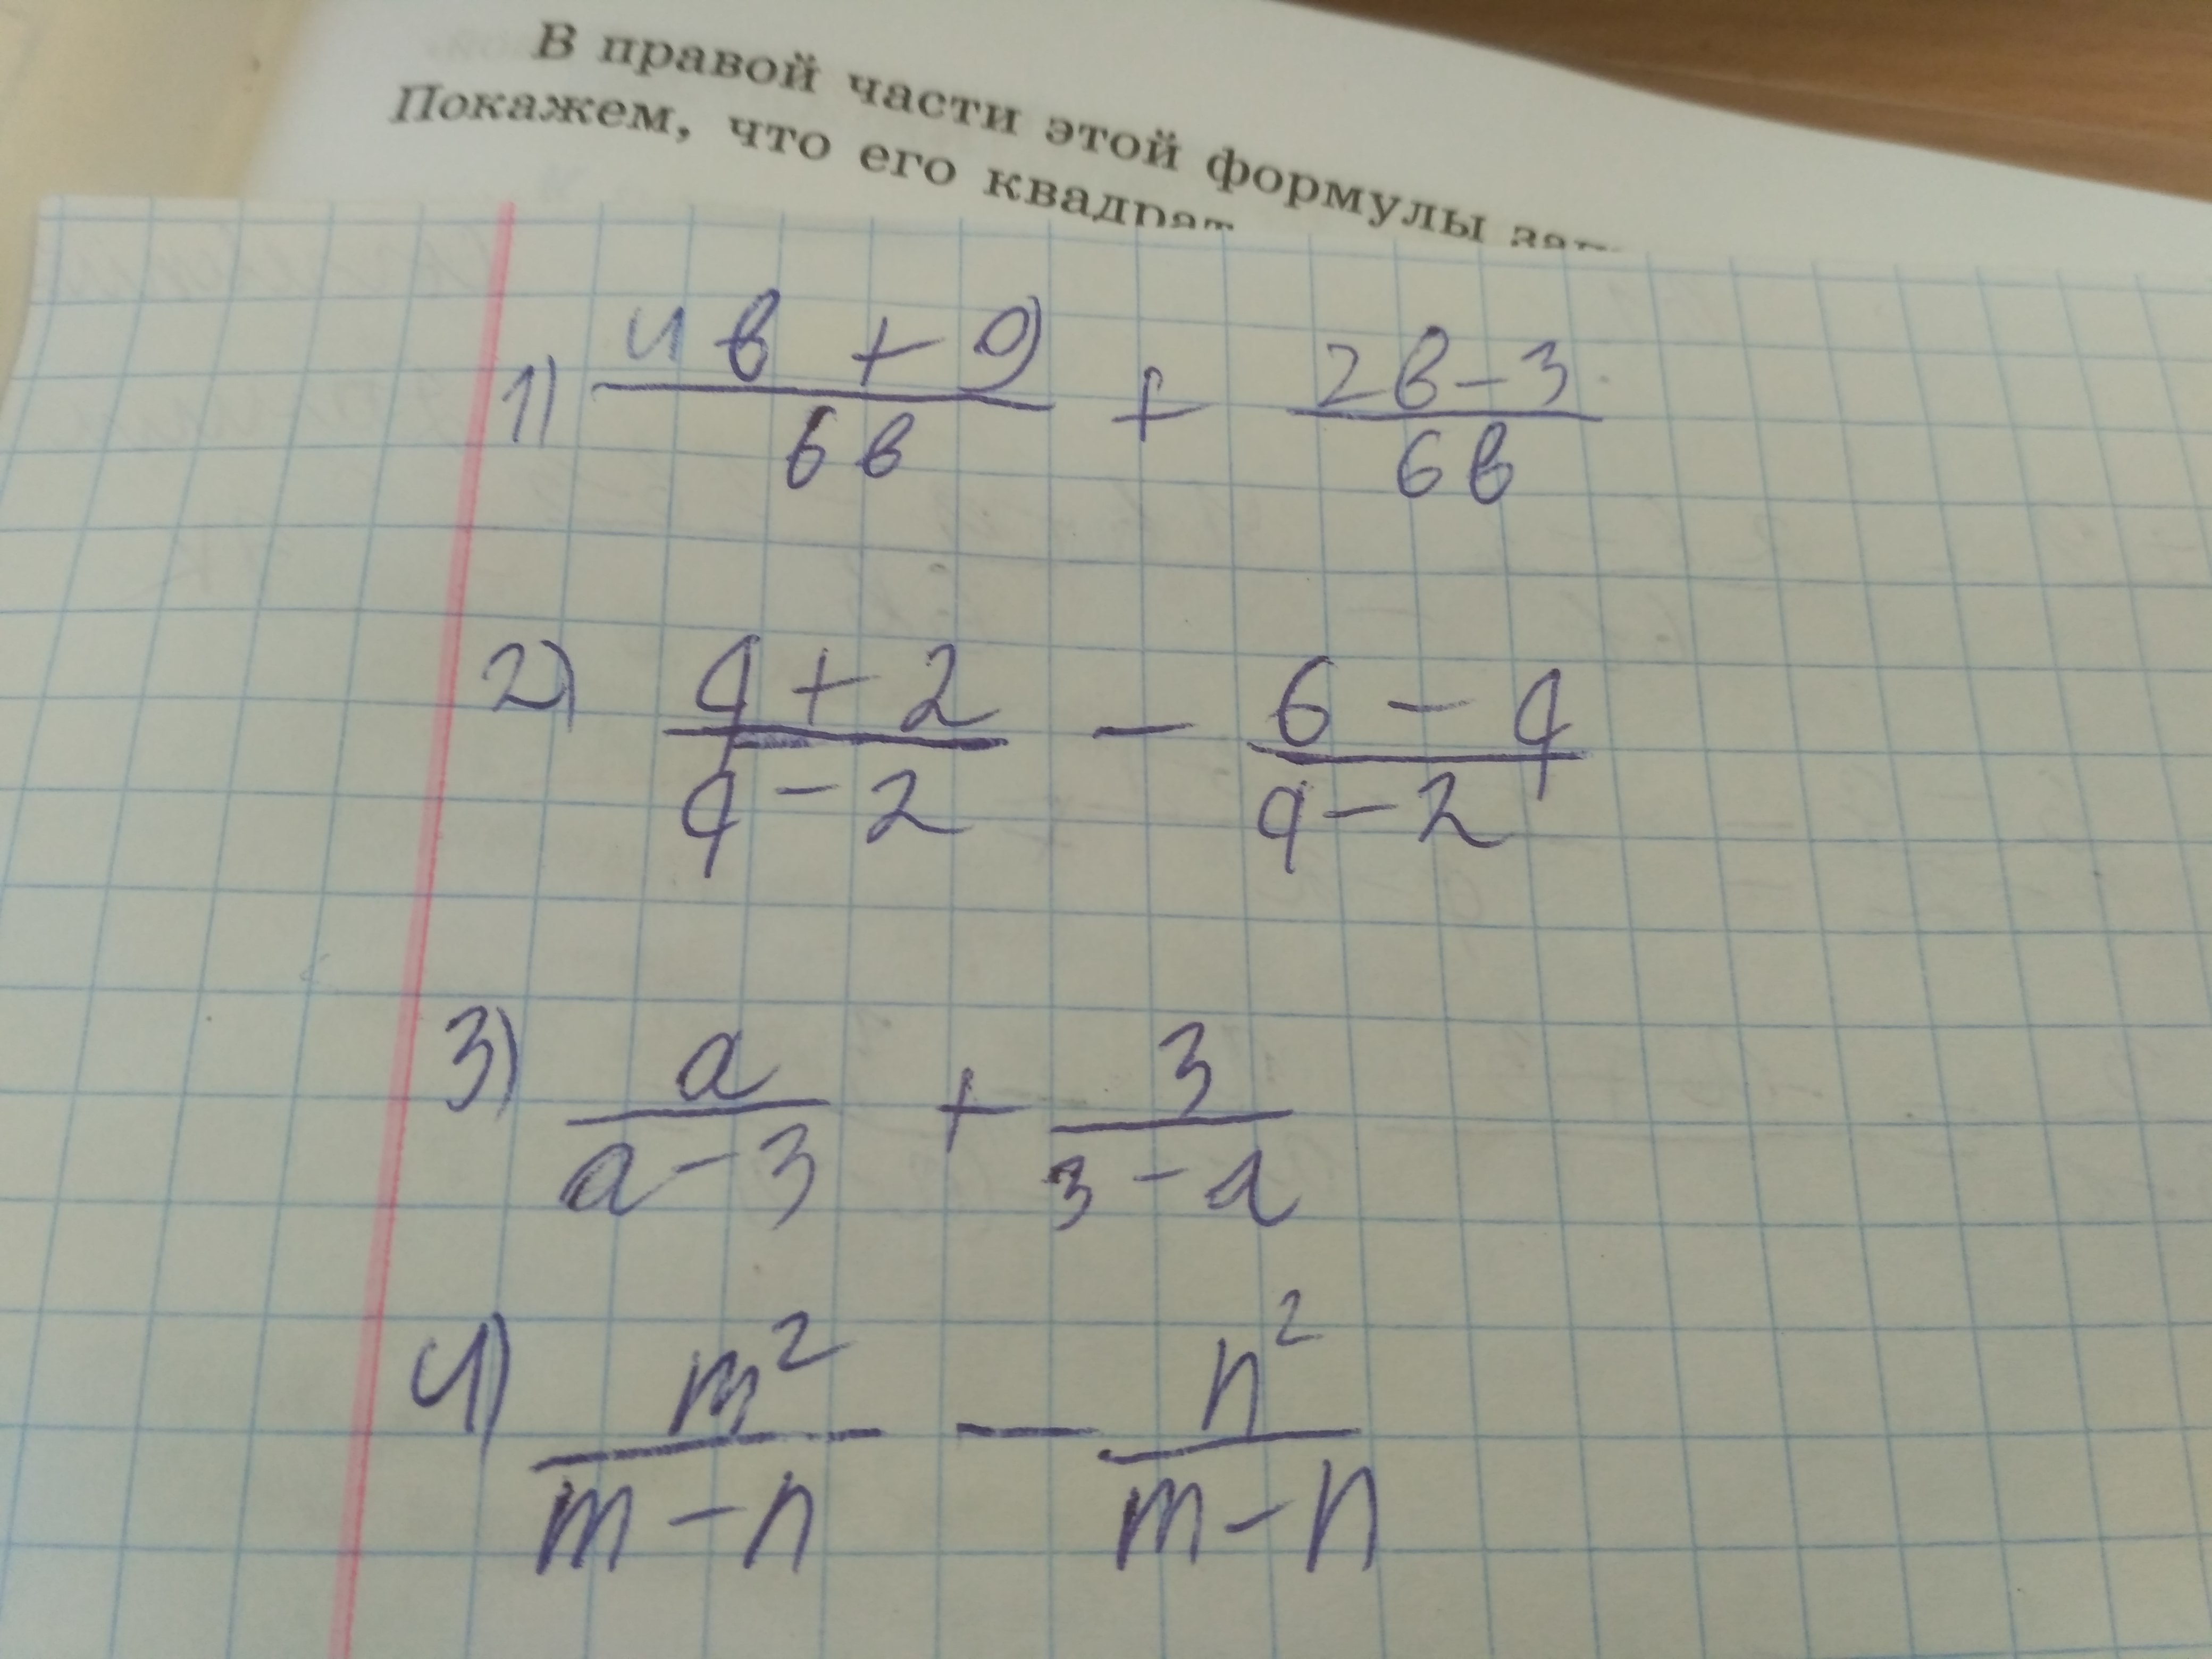 В правой части этой формулы
Покажем, что его квадрат
1) (4в + 9)/(6в) + (2в - 3)/(6в)
2) (q + 2)/(q - 2) - (6 - q)/(q - 2)
3) a/(a - 3) + 3/(3 - a)
4) m²/(m - n) - n²/(m - n)